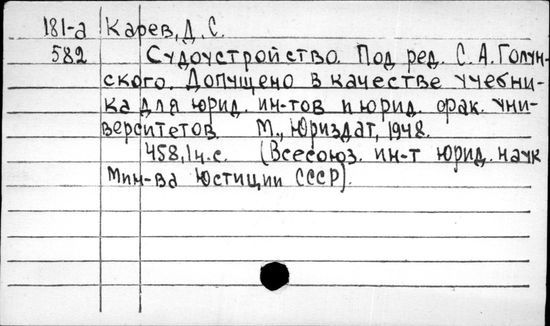 181-а Карев, Д. С.
582 Судоустройство. Под ред. С. А. Голун-
ского. Допущено в качестве учебни-
ка для юрид. ин-тов и юрид. фак. уни-
верситетов. М., Юриздат, 1948.
458, 1 н. с. (Всесоюз. ин-т юрид. наук
Мин-ва юстиции СССР).